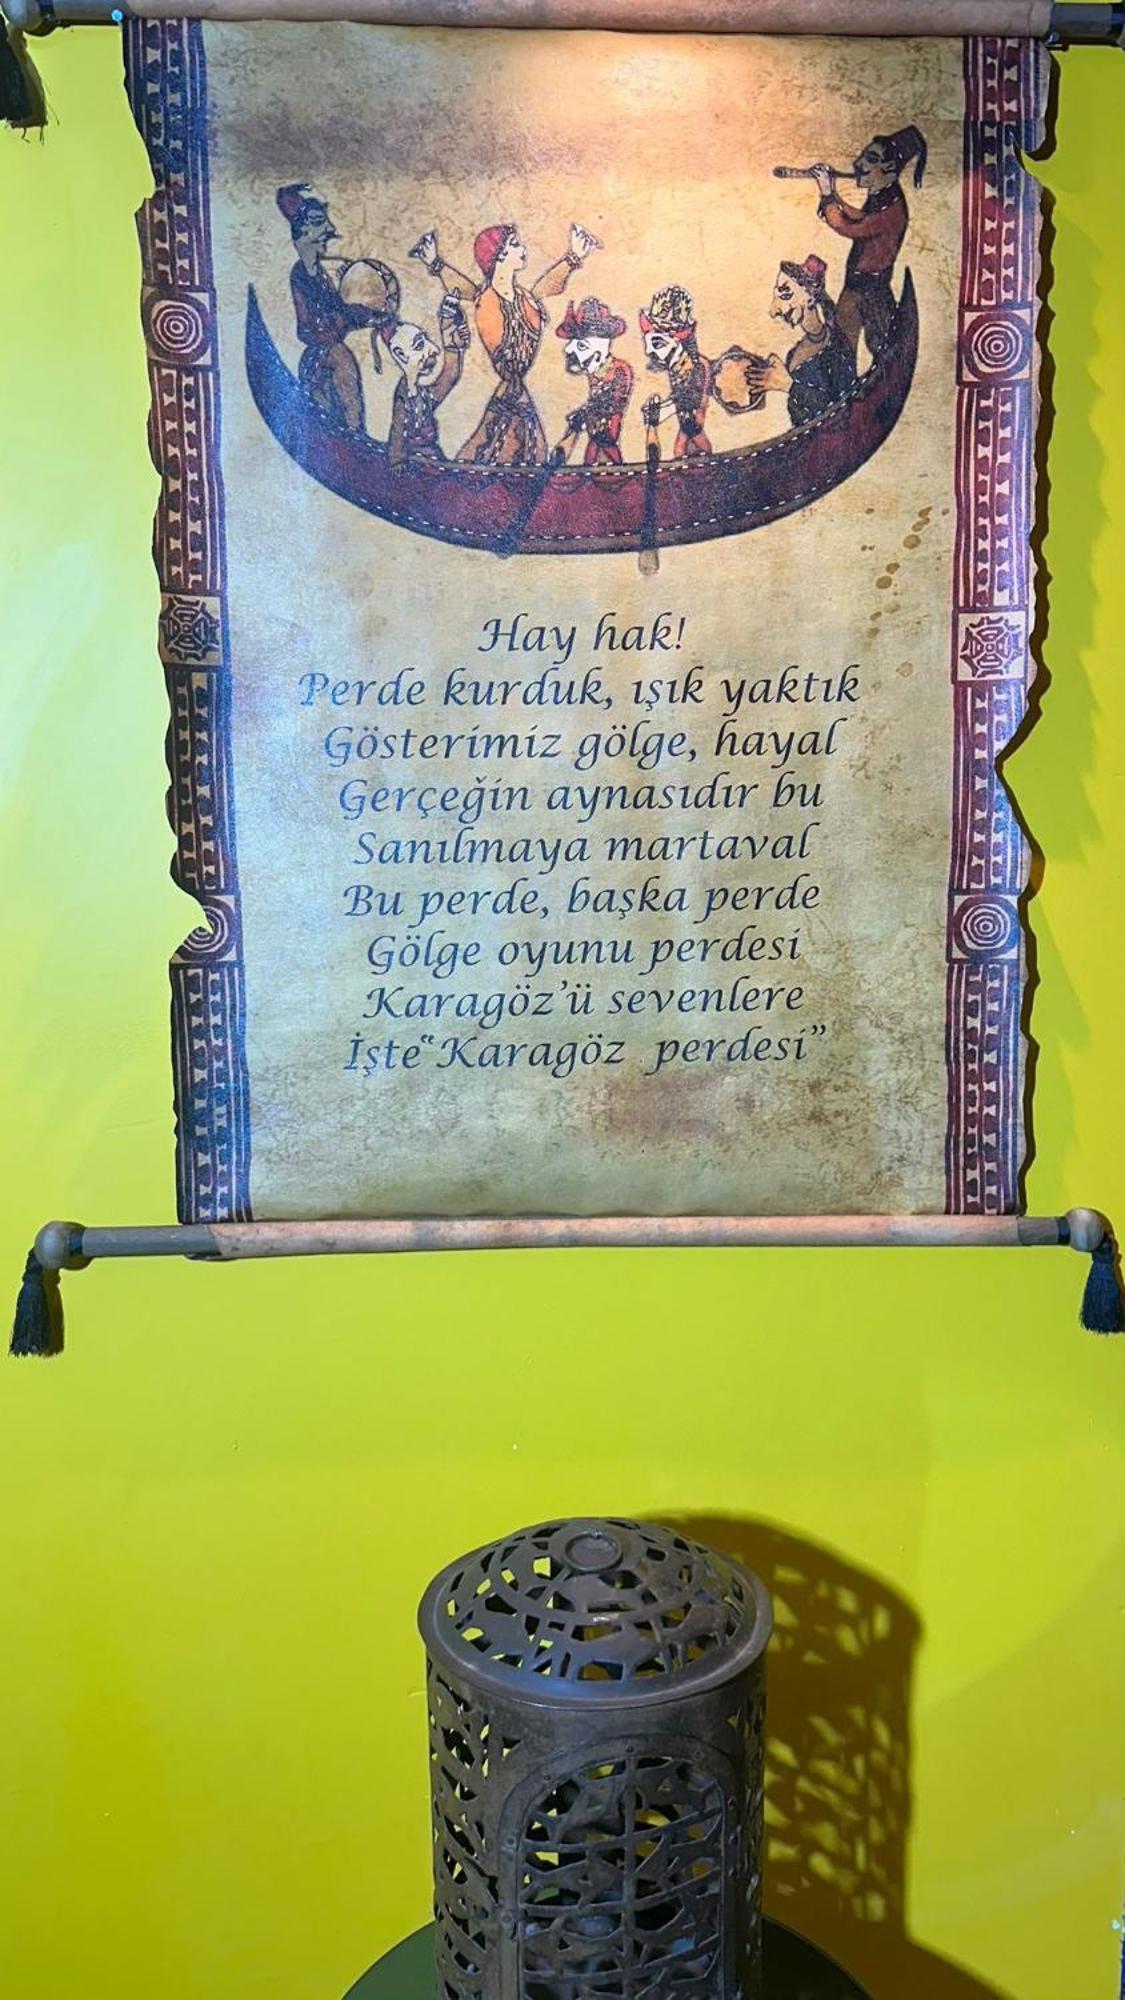 Hay hak!
Perde kurduk, ışık yaktık
Gösterimiz gölge, hayal
Gerçeğin aynasıdır bu
Sanılmaya martaval
Bu perde, başka perde
Gölge oyunu perdesi
Karagöz'ü sevenlere
İşte "Karagöz perdesi"